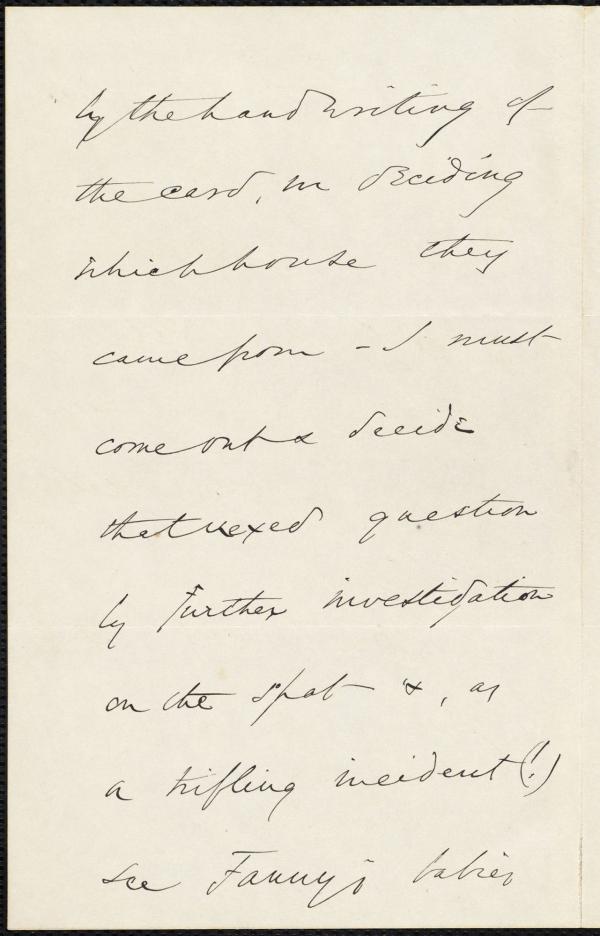 by the handwriting of
the card, in deciding
which house they
came from - I must
come out & decide
that vexed question
by further investigation
on the spot &, as
a trifling incident (!)
see Fanny's babies